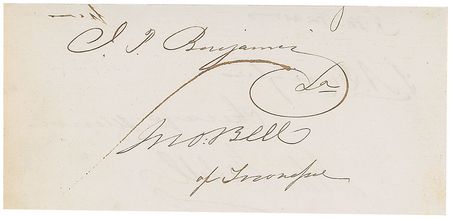 J. P. Benjamin
La
Jno. Bell
of Tennessee